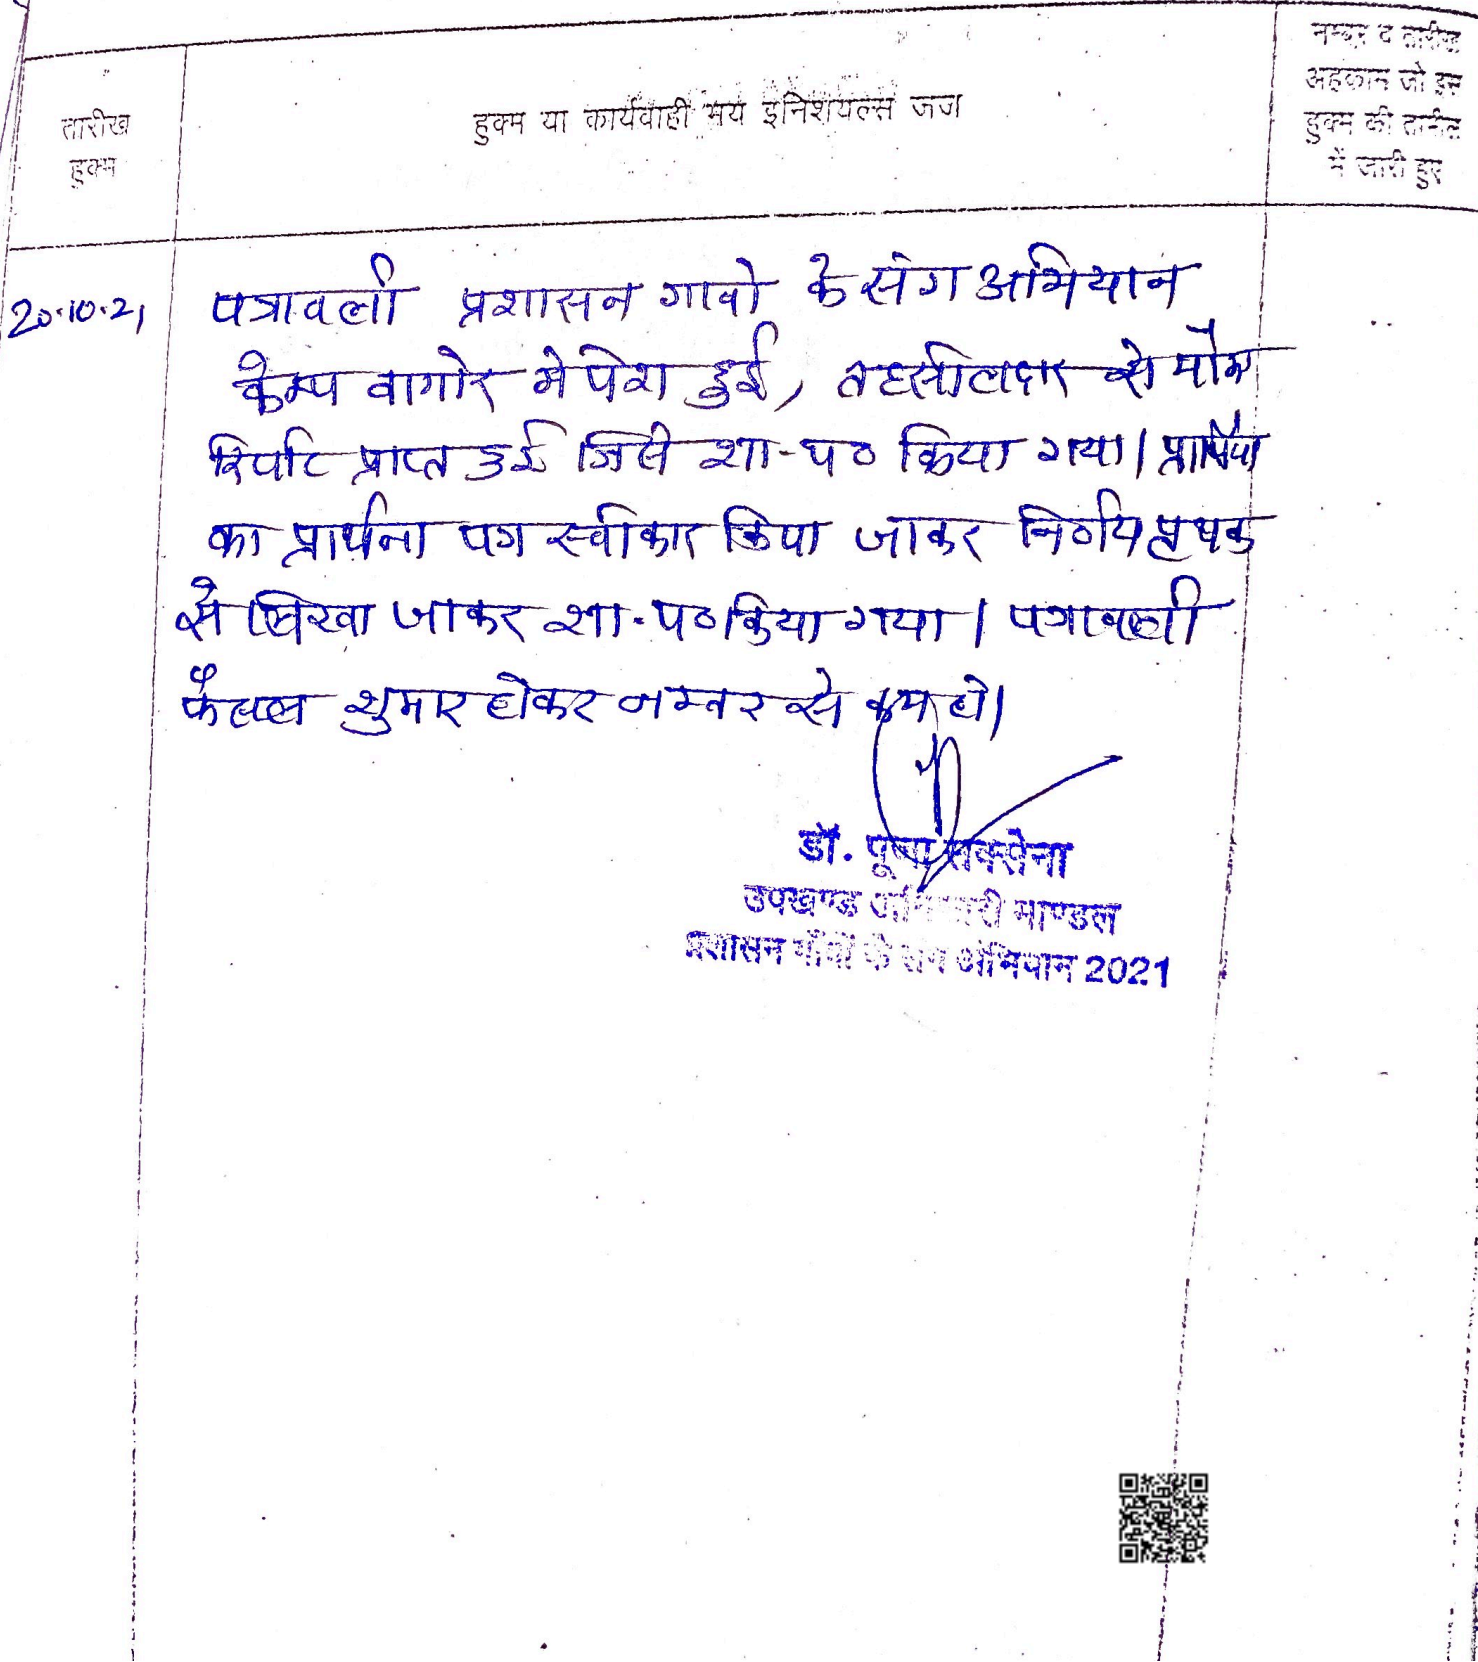 तारीख
हुक्म
हुक्म या कार्यवाही मय इनिशियल्स जज
नम्बर व तारीख
अहकाम जो इस
हुक्म की तामील
में जारी हुए
20.10.21
पत्रावली प्रशासन गावो के संग अभियान
केम्प बागोर मे पेश हुई, तहसीलदार से मौका
रिर्पोट प्राप्त हुई जिसे शा-प० किया गया। प्रार्थीया
का प्रार्थना पत्र स्वीकार किया जाकर निर्णय पृथक
से लिखा जाकर शा-प० किया गया। पत्रावली
फैसल शुमार होकर नम्बर से कम हो।
डॉ. पूजा सक्सेना
उपखण्ड अधिकारी माण्डल
प्रशासन गाँवों के संग अभियान 2021